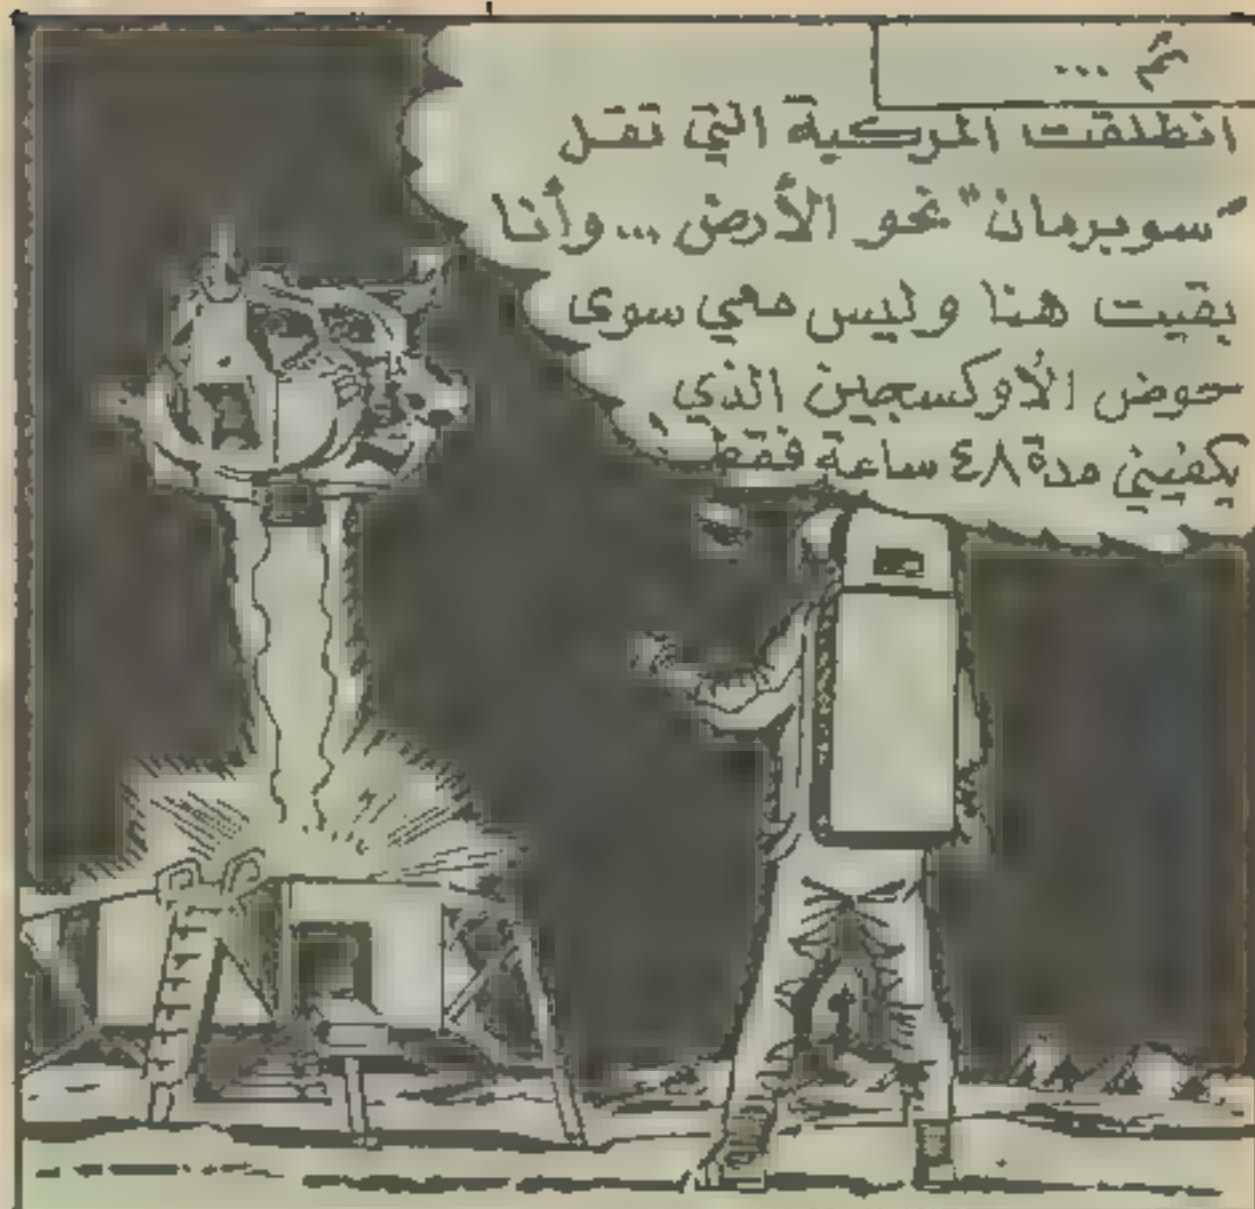 ثم ...
انطلقت المركبة التي تقل
"سوبرمان" نحو الأرض ... وأنا
بقيت هنا وليس معي سوى
حوض الأوكسجين الذي
يكفيني مدة ٤٨ ساعة فقط